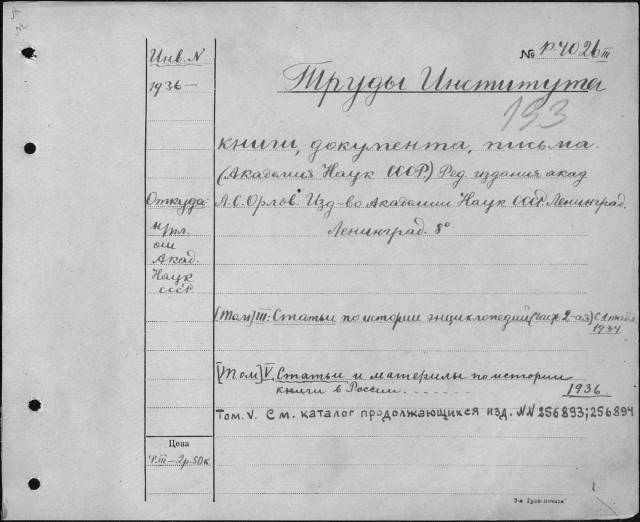 Инв. N
1936 —
№ Р.4026 III
Труды Института
193
книги, документа, письма.
(Академия Наук СССР) Ред. издания акад
А.С. Орлов. Изд-во Академии Наук СССР. Ленинград.
Ленинград. 8°
Откуда:
Акад.
Наук
СССР
[Том] III: Статьи по истории энциклопедий (часть 2-ая) С 1 табл
1934
[Том] V. Статьи и материлы по истории
книги в России. . . . . . . . 1936
Том. V. См. каталог продолжающихся изд. NN 256893; 256894
Цена
Р.III — 2р.50к